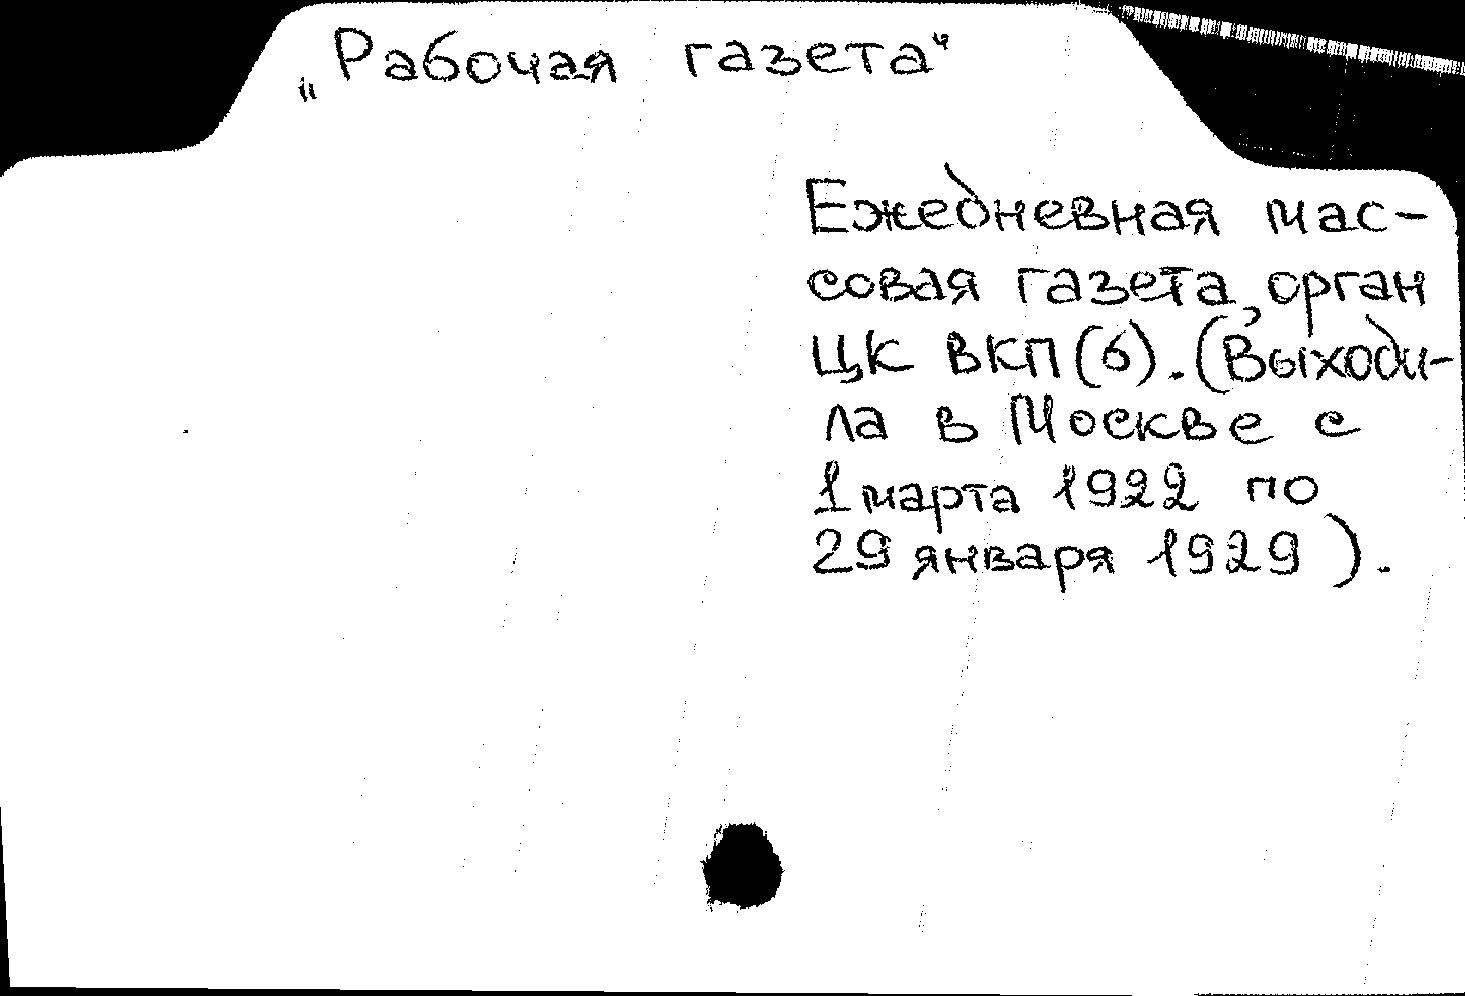 „Рабочая газета“
Ежедневная мас-
совая газета, орган
ЦК ВКП(б). (Выходи-
ла в Москве с
1 марта 1922 по
29 января 1929).